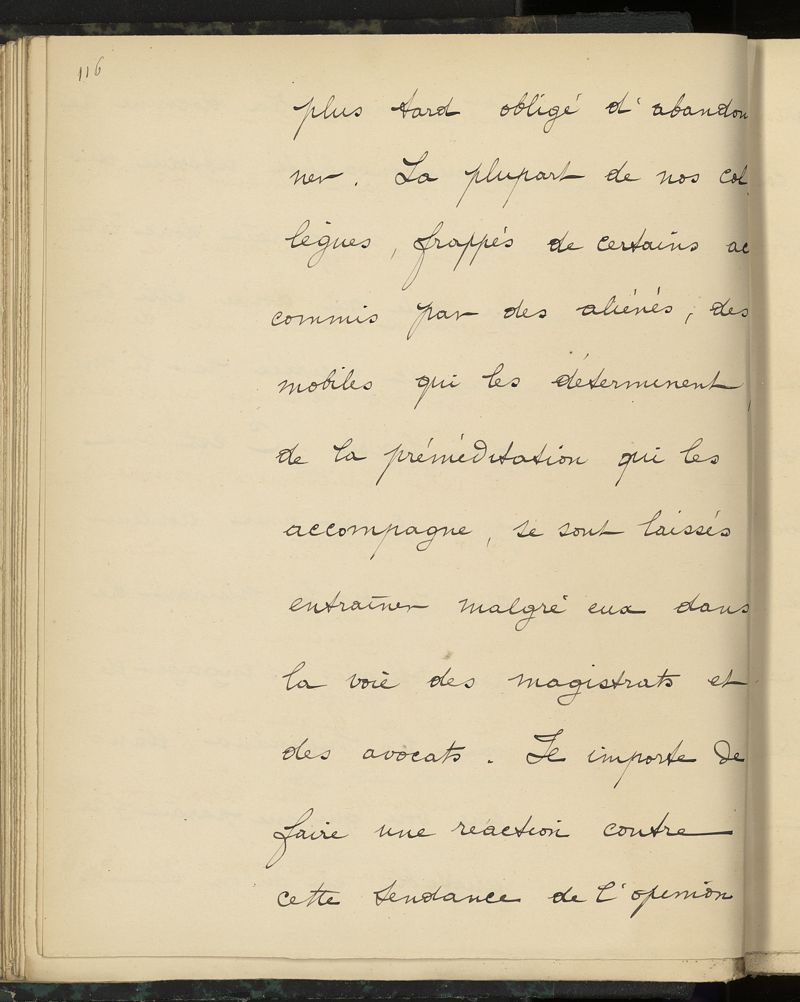 116
plus tard obligé d'abandon
ner. La plupart de nos col
lègues, frappés de certains ac
commis par des aliénés, des
mobiles qui les déterminent,
de la préméditation qui les
accompagne, se sont laissés
entraîner malgré eux dans
la voie des magistrats et
des avocats. Il importe de
faire une réaction contre
cette tendance de l'opinion